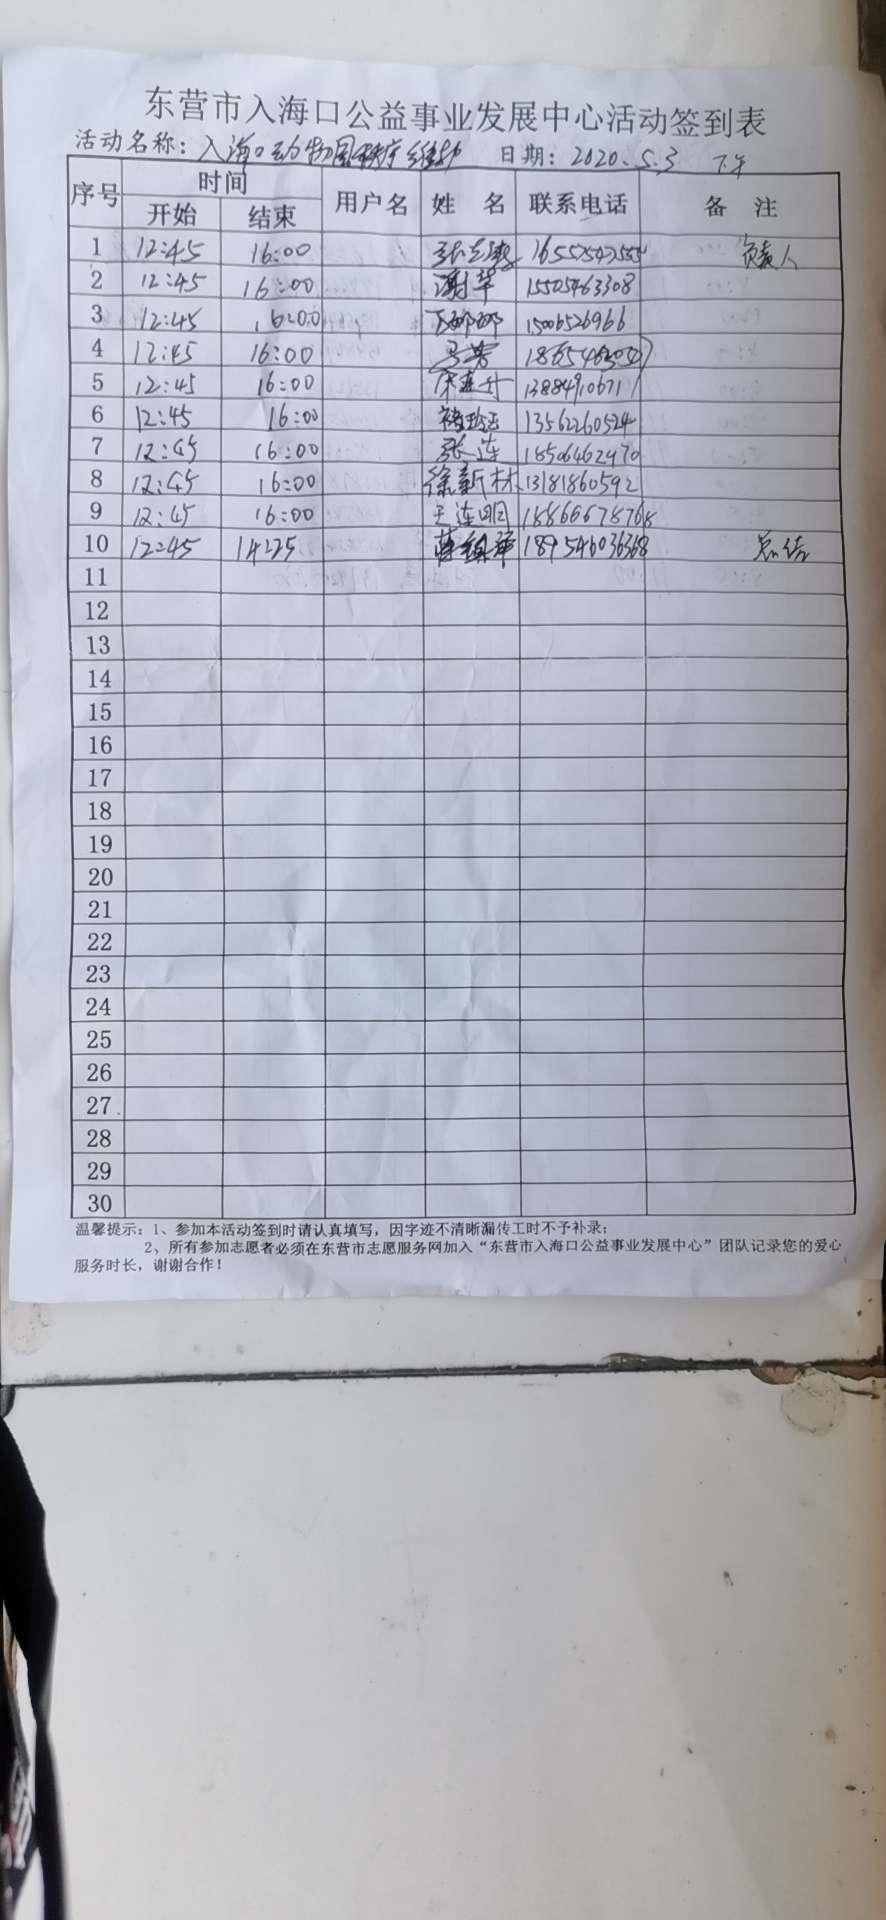 东营市入海口公益事业发展中心活动签到表
活动名称：入海口动物园秩序维护 日期：2020.5.3 下午
序号 时间 用户名 姓 名 联系电话 备 注
开始 结束
1 12:45 16:00 负责人
2 12:45 16:00 谢苹 15505463308
3 12:45 16:00 15006526966
4 12:45 16:00 马芳
5 12:45 16:00 13884910671
6 12:45 16:00 13562260524
7 12:45 16:00 张莲 18506462970
8 12:45 16:00 徐新林 13181860592
9 12:45 16:00 王连明
10 12:45 14:25 总结
11
12
13
14
15
16
17
18
19
20
21
22
23
24
25
26
27
28
29
30
温馨提示：1、参加本活动签到时请认真填写，因字迹不清晰漏传工时不予补录；
2、所有参加志愿者必须在东营市志愿服务网加入“东营市入海口公益事业发展中心”团队记录您的爱心
服务时长，谢谢合作！